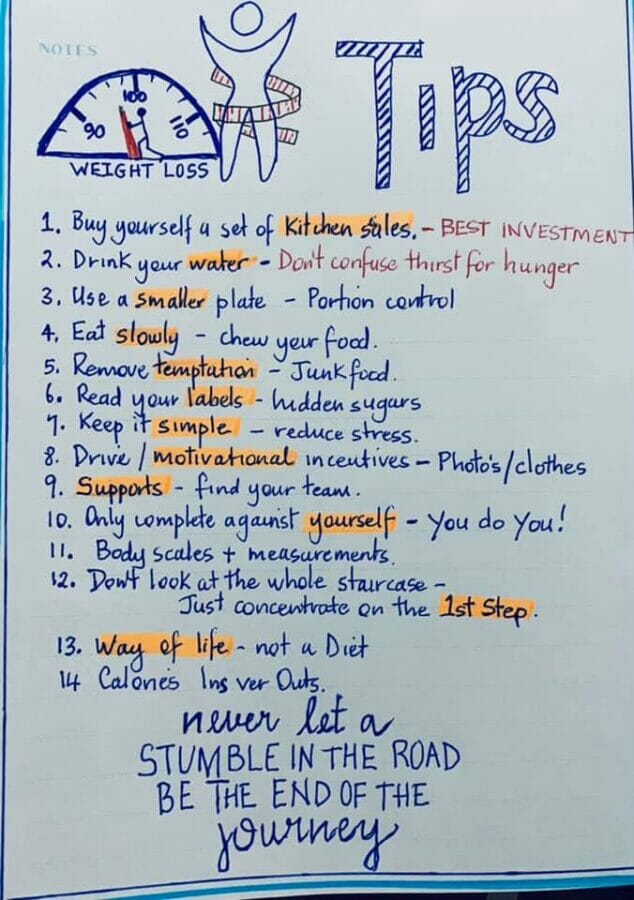 NOTES
Tips
90 100 110
WEIGHT LOSS
1. Buy yourself a set of Kitchen sales. - BEST INVESTMENT
2. Drink your water - Don't confuse thirst for hunger
3. Use a smaller plate - Portion control
4. Eat slowly - chew your food.
5. Remove temptation - Junk food.
6. Read your labels - hidden sugars
7. Keep it simple - reduce stress.
8. Drive / motivational incentives - Photo's/clothes
9. Supports - find your team.
10. Only complete against yourself - You do You!
11. Body scales + measurements.
12. Don't look at the whole staircase -
Just concentrate on the 1st Step.
13. Way of life - not a Diet
14 Calories Ins ver Outs.
never let a
STUMBLE IN THE ROAD
BE THE END OF THE
journey